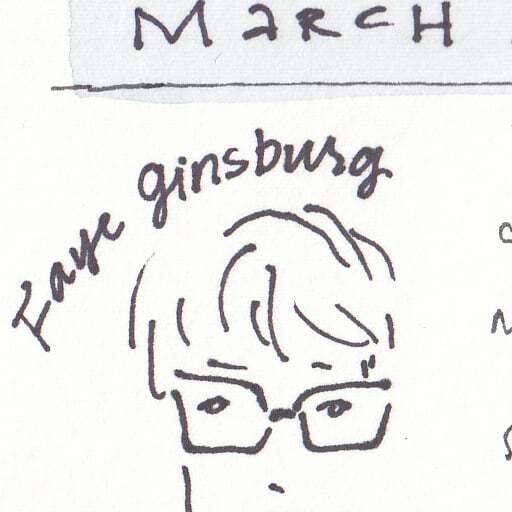 MARCH
Faye ginsburg